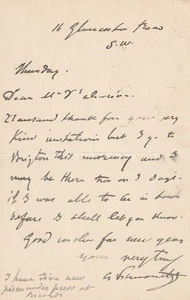 16 Gloucester Road
S.W.
Thursday.
Dear Mr
thousand thanks for your very
kind invitation but I go to
Brighton this morning and I
may be there two or 3 days
if I was able to be in town
before I shall let you know.
Good wishes for new year
yours very truly
I have five new
pieces under press at